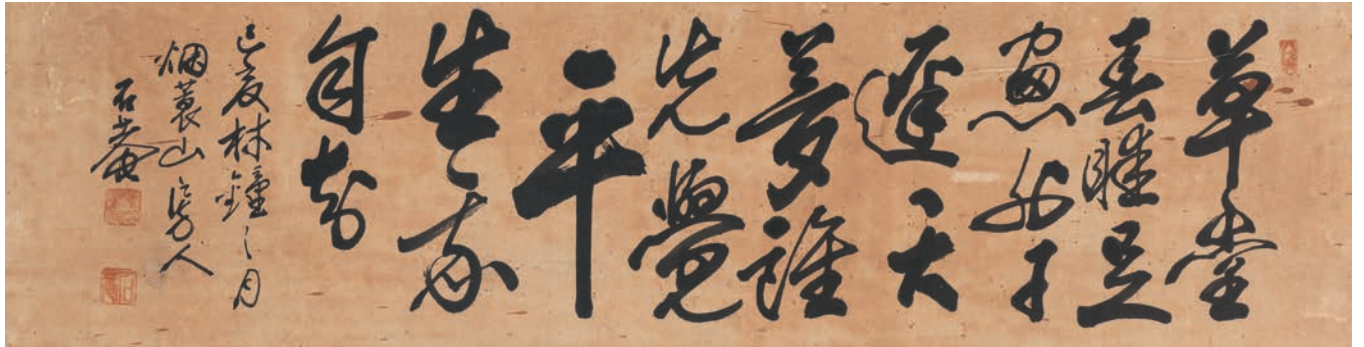 草堂
春睡足
窓外日
遲〻大
夢誰
先覺
平
生我
自知
夏林鐘之月
烟蓑山人
石菴